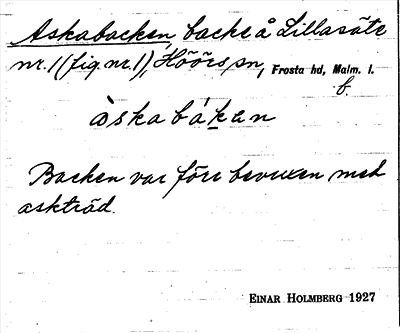 Askabacken, backe å Lillasäte
nr. 1 (fig. nr. 1), Höörs sn, Frosta hd, Malm. l.
f.
àskabákan
Backen var förr bevuxen med
askträd.
EINAR HOLMBERG 1927